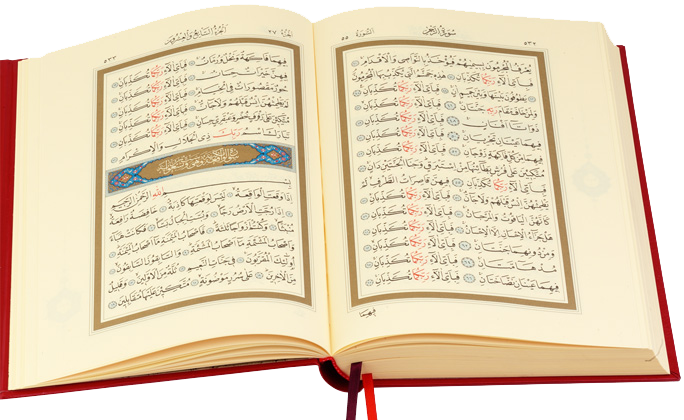 ٥٣٢ سورة الرحمن السورة ٥٥
يُعْرَفُ الْمُجْرِمُونَ بِسِيمٰيهُمْ فَيُؤْخَذُ بِالنَّوَاصِي وَالْاَقْدَامِ
فَبِاَيِّ اٰلَٓاءِ رَبِّكُمَا تُكَذِّبَانِ هٰذِهِ جَهَنَّمُ الَّتِي يُكَذِّبُ بِهَا الْمُجْرِمُونَ
يَطُوفُونَ بَيْنَهَا وَبَيْنَ حَمِيمٍ اٰنٍ فَبِاَيِّ اٰلَٓاءِ رَبِّكُمَا تُكَذِّبَانِ
وَلِمَنْ خَافَ مَقَامَ رَبِّهِ جَنَّتَانِ فَبِاَيِّ اٰلَٓاءِ رَبِّكُمَا تُكَذِّبَانِ
ذَوَاتَٓا اَفْنَانٍ فَبِاَيِّ اٰلَٓاءِ رَبِّكُمَا تُكَذِّبَانِ
فِيهِمَا عَيْنَانِ تَجْرِيَانِ فَبِاَيِّ اٰلَٓاءِ رَبِّكُمَا تُكَذِّبَانِ
فِيهِمَا مِنْ كُلِّ فَاكِهَةٍ زَوْجَانِ فَبِاَيِّ اٰلَٓاءِ رَبِّكُمَا تُكَذِّبَانِ
مُتَّكِـِٔينَ عَلٰى فُرُشٍ بَطَٓائِنُهَا مِنْ اِسْتَبْرَقٍ وَجَنَا الْجَنَّتَيْنِ دَانٍ
فَبِاَيِّ اٰلَٓاءِ رَبِّكُمَا تُكَذِّبَانِ فِيهِنَّ قَاصِرَاتُ الطَّرْفِ لَمْ
يَطْمِثْهُنَّ اِنْسٌ قَبْلَهُمْ وَلَا جَٓانٌّ فَبِاَيِّ اٰلَٓاءِ رَبِّكُمَا تُكَذِّبَانِ
كَاَنَّهُنَّ الْيَاقُوتُ وَالْمَرْجَانُ فَبِاَيِّ اٰلَٓاءِ رَبِّكُمَا تُكَذِّبَانِ
هَلْ جَزَٓاءُ الْاِحْسَانِ اِلَّا الْاِحْسَانُ فَبِاَيِّ اٰلَٓاءِ رَبِّكُمَا تُكَذِّبَانِ
وَمِنْ دُونِهِمَا جَنَّتَانِ فَبِاَيِّ اٰلَٓاءِ رَبِّكُمَا تُكَذِّبَانِ
مُدْهَٓامَّتَانِ فَبِاَيِّ اٰلَٓاءِ رَبِّكُمَا تُكَذِّبَانِ
فِيهِمَا عَيْنَانِ نَضَّاخَتَانِ فَبِاَيِّ اٰلَٓاءِ رَبِّكُمَا تُكَذِّبَانِ
فيهما
الجزء ٢٧ الجزء السابع والعشرون ٥٣٣
فِيهِمَا فَاكِهَةٌ وَنَخْلٌ وَرُمَّانٌ فَبِاَيِّ اٰلَٓاءِ رَبِّكُمَا تُكَذِّبَانِ
فِيهِنَّ خَيْرَاتٌ حِسَانٌ فَبِاَيِّ اٰلَٓاءِ رَبِّكُمَا تُكَذِّبَانِ
حُورٌ مَقْصُورَاتٌ فِي الْخِيَامِ فَبِاَيِّ اٰلَٓاءِ رَبِّكُمَا تُكَذِّبَانِ
لَمْ يَطْمِثْهُنَّ اِنْسٌ قَبْلَهُمْ وَلَا جَٓانٌّ فَبِاَيِّ اٰلَٓاءِ رَبِّكُمَا تُكَذِّبَانِ
مُتَّكِـِٔينَ عَلٰى رَفْرَفٍ خُضْرٍ وَعَبْقَرِيٍّ حِسَانٍ فَبِاَيِّ اٰلَٓاءِ رَبِّكُمَا تُكَذِّبَانِ
تَبَارَكَ اسْمُ رَبِّكَ ذِي الْجَلَالِ وَالْاِكْرَامِ
بِسْمِ اللّٰهِ الرَّحْمٰنِ الرَّحِيمِ
اِذَا وَقَعَتِ الْوَاقِعَةُ لَيْسَ لِوَقْعَتِهَا كَاذِبَةٌ خَافِضَةٌ رَافِعَةٌ
اِذَا رُجَّتِ الْاَرْضُ رَجًّا وَبُسَّتِ الْجِبَالُ بَسًّا فَكَانَتْ هَبَٓاءً
مُنْبَثًّا وَكُنْتُمْ اَزْوَاجًا ثَلٰثَةً فَاَصْحَابُ الْمَيْمَنَةِ مَٓا اَصْحَابُ الْمَيْمَنَةِ
وَاَصْحَابُ الْمَشْـَٔمَةِ مَٓا اَصْحَابُ الْمَشْـَٔمَةِ وَالسَّابِقُونَ السَّابِقُونَ
اُو۬لٰٓئِكَ الْمُقَرَّبُونَ فِي جَنَّاتِ النَّعِيمِ ثُلَّةٌ مِنَ الْاَوَّلِينَ وَقَلِيلٌ
مِنَ الْاٰخِرِينَ عَلٰى سُرُرٍ مَوْضُونَةٍ مُتَّكِـِٔينَ عَلَيْهَا مُتَقَابِلِينَ